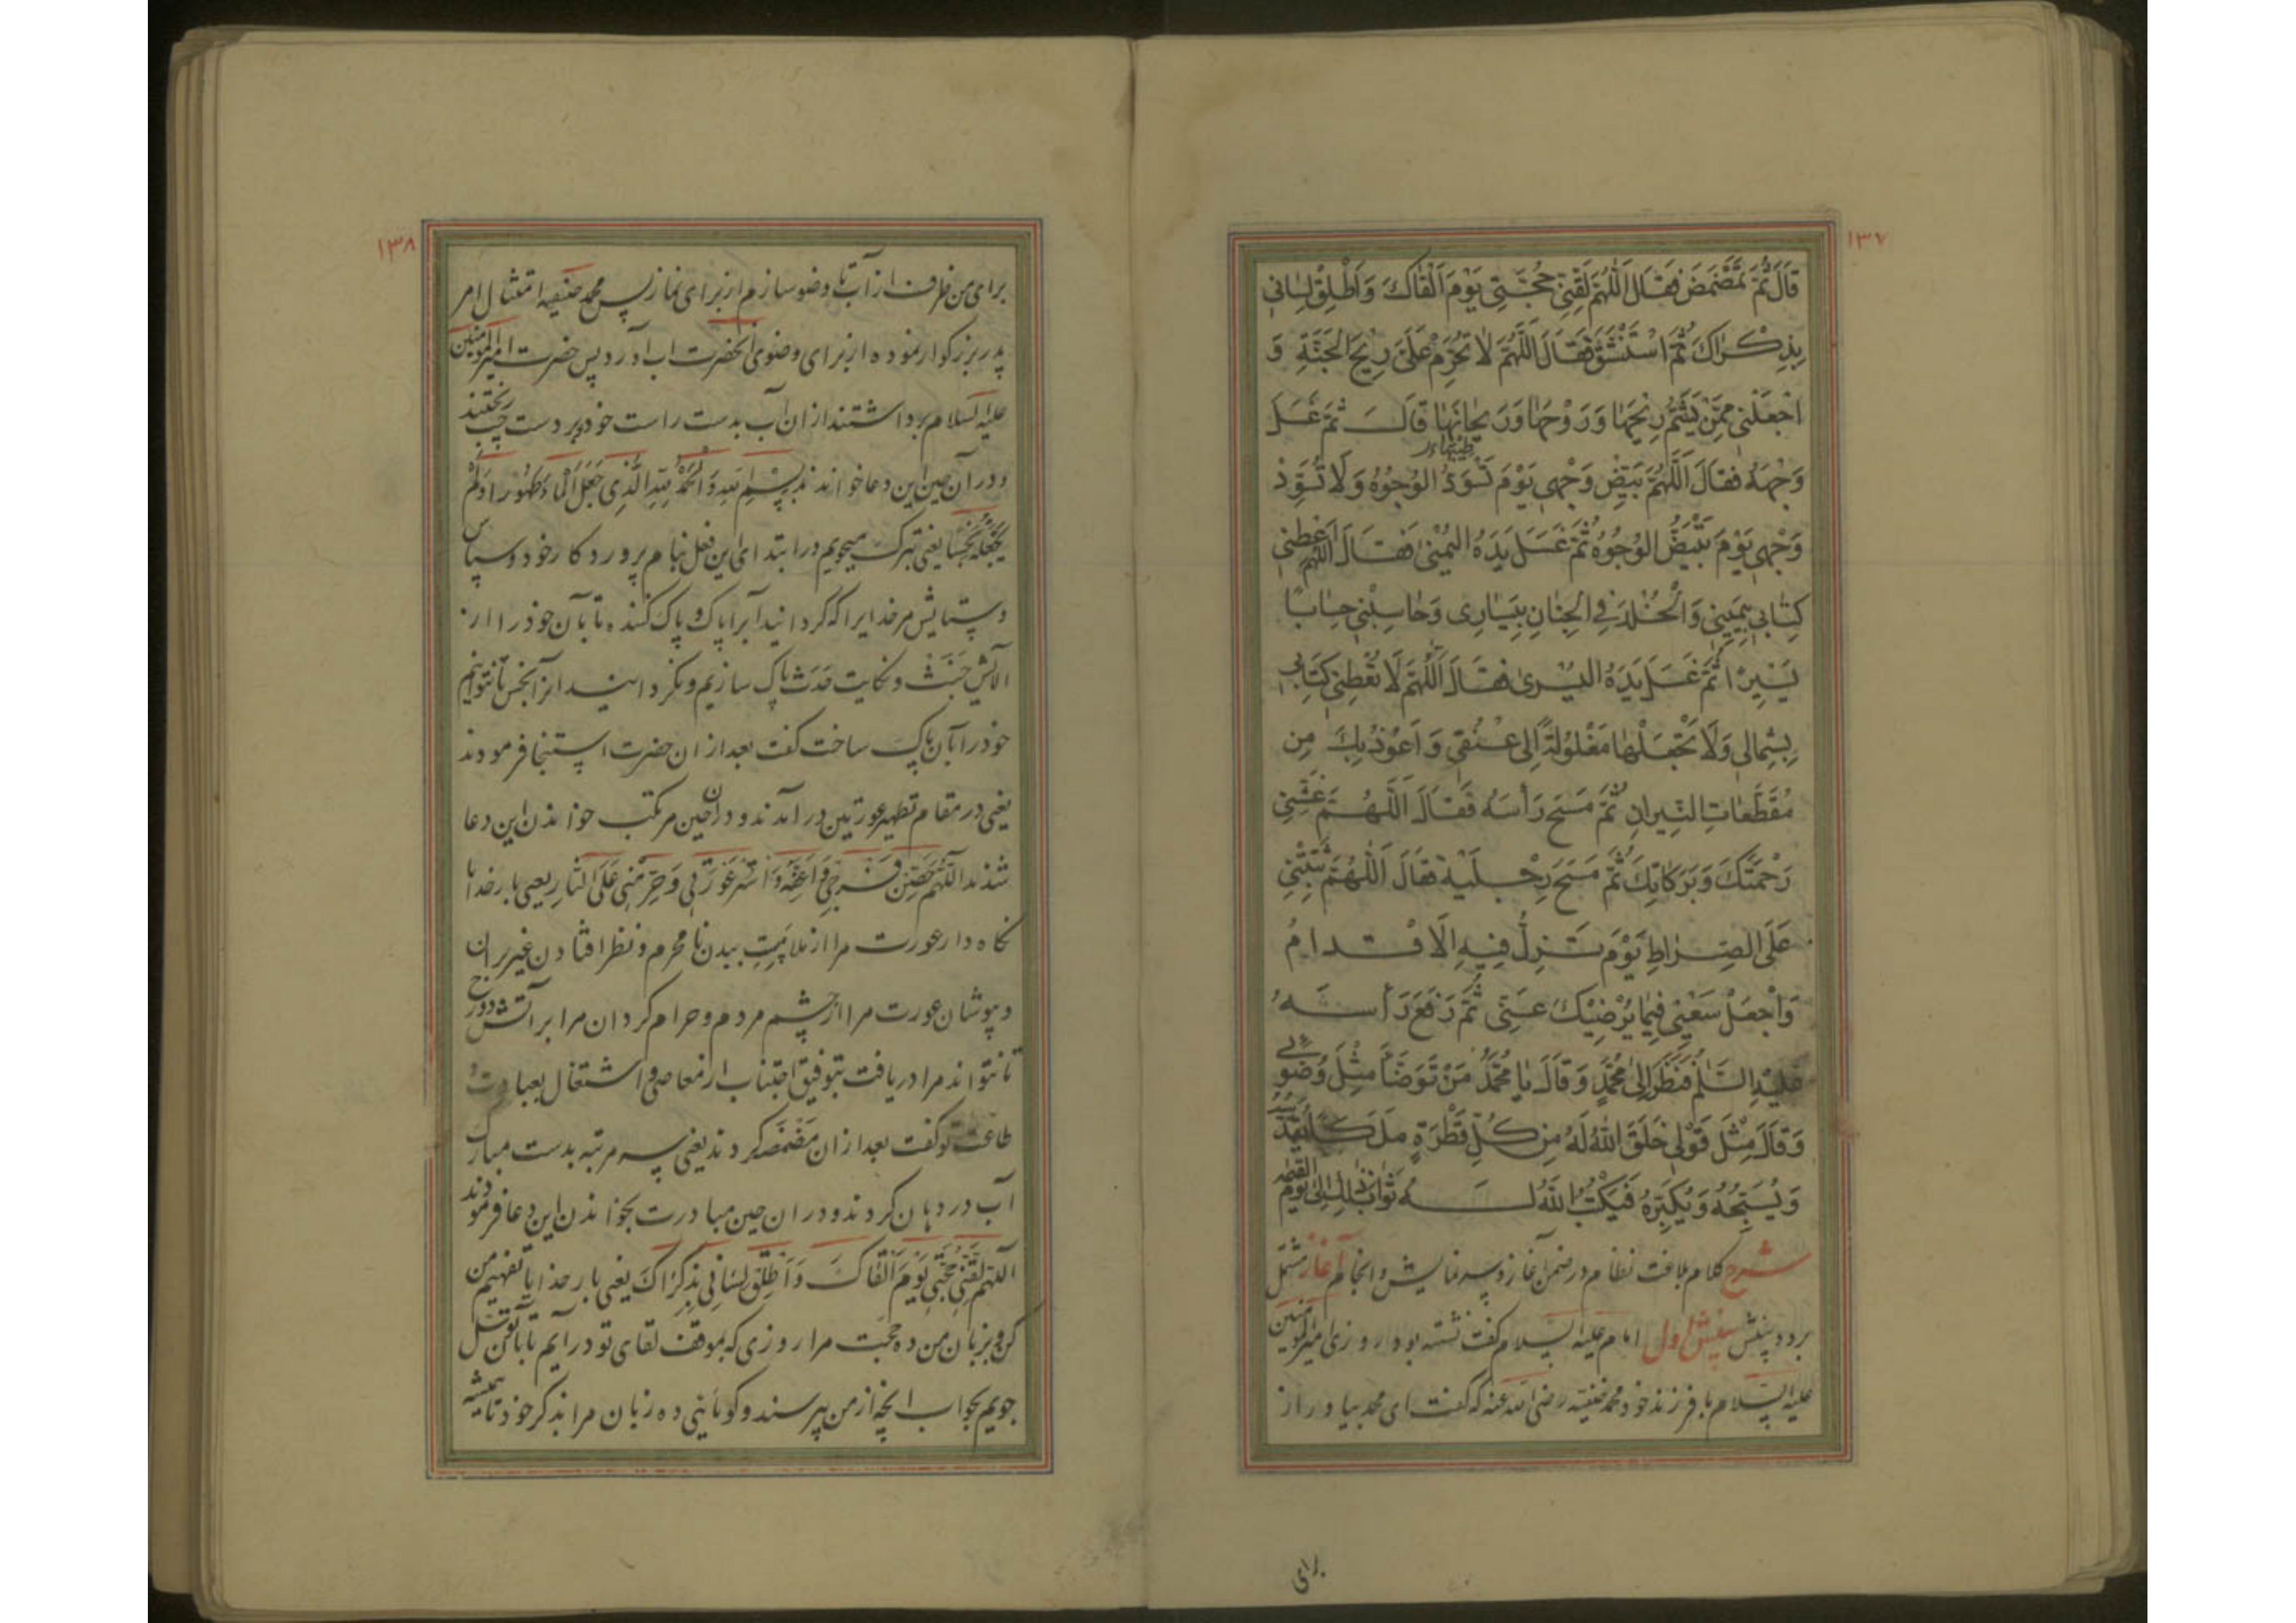 ١٣٧
قَالَ ثُمَّ تَمَضْمَضَ فَقَالَ اَللّٰهُمَّ لَقِّنِی حُجَّتِی یَوْمَ اَلْقَاكَ وَاَطْلِقْ لِسَانِی
بِذِكْرَاكَ ثُمَّ اسْتَنْشَقَ فَقَالَ اَللّٰهُمَّ لَا تُحَرِّمْ عَلَیَّ رِیحَ الْجَنَّةِ وَ
اجْعَلْنِی مِمَّنْ یَشَمُّ رِیْحَهَا وَرَوْحَهَا وَرَیْحَانَهَا قَالَ ثُمَّ غَسَلَ
طیبها
وَجْهَهُ فَقَالَ اَللّٰهُمَّ بَیِّضْ وَجْهِی یَوْمَ تَسْوَدُّ الْوُجُوْهُ وَلَا تُسَوِّدْ
وَجْهِی یَوْمَ تَبْیَضُّ الْوُجُوْهُ ثُمَّ غَسَلَ یَدَهُ الْیُمْنٰی فَقَالَ اللّٰهُمَّ اَعْطِنِی
كِتَابِی بِیَمِیْنِی وَالْخُلْدَ فِی الْجِنَانِ بِیَسَارِی وَحَاسِبْنِی حِسَابًا
یَسِیْرًا ثُمَّ غَسَلَ یَدَهُ الْیُسْرٰی فَقَالَ اَللّٰهُمَّ لَا تُعْطِنِی كِتَابِی
بِشِمَالِی وَلَا تَجْعَلْهَا مَغْلُوْلَةً اِلٰی عُنُقِی وَاَعُوْذُ بِكَ مِن
مُقَطَّعَاتِ النِّیرَانِ ثُمَّ مَسَحَ رَأْسَهُ فَقَالَ اَللّٰهُمَّ غَشِّنِی
رَحْمَتَكَ وَبَرَكَاتِكَ ثُمَّ مَسَحَ رِجْلَیْهِ فَقَالَ اَللّٰهُمَّ ثَبِّتْنِی
عَلَی الصِّرَاطِ یَوْمَ تَزِلُّ فِیهِ الْاَقْدَامُ
وَاجْعَلْ سَعْیِی فِیمَا یُرْضِیْكَ عَنِّی ثُمَّ رَفَعَ رَأْسَهُ
عَلَیْهِ السَّلٰمُ فَنَظَرَ اِلٰی مُحَمَّدٍ وَقَالَ یَا مُحَمَّدُ مَنْ تَوَضَّأَ مِثْلَ وُضُوئِی
وَقَالَ مِثْلَ قَوْلِی خَلَقَ اللّٰهُ لَهُ مِنْ كُلِّ قَطْرَةٍ مَلَكًا یُقَدِّسُهُ
وَیُسَبِّحُهُ وَیُكَبِّرُهُ فَیَكْتُبُ اللّٰهُ لَهُ ثَوَابَ ذٰلِكَ اِلٰی یَوْمِ الْقِیٰمَةِ
شرح کلام بلاغت نظام در ضمن آغاز و سه نمایش و انجام آغاز مشتمل
بر دو بینش بینش اول امام علیه السلام گفت نشسته بود روزی امیر المومنین
علیه السلام با فرزند خود محمد حنفیه رضی الله عنه که گفت ای محمد بیاور از
برای
١٣٨
برای من ظرف از آب تا وضو سازم از برای نماز پس محمد حنفیه امتثال امر
پدر بزرگوار نموده از برای وضوی آنحضرت آب آورد پس حضرت امیر المومنین
علیه السلام برداشتند از ان آب بدست راست خود و بر دست چپ ریختند
و در آن حین این دعا خواندند بِسْمِ اللّٰهِ وَالْحَمْدُ لِلّٰهِ الَّذِی جَعَلَ الْمَاءَ طَهُوْرًا وَلَمْ
یَجْعَلْهُ نَجِسًا یعنی تبرک میجویم در ابتدای این فعل بنام پروردگار خود و سپاس
و ستایش مر خدایرا که گردانید آبرا پاک و پاک کننده تا بآن خود را از
الایش خَبَث و نکایت حَدَث پاک سازیم و نگردانید انرا نجس تا نتوانیم
خود را بآن پاک ساخت گفت بعد از ان حضرت استنجا فرمودند
یعنی در مقام تطهیر عورتین در آمدند و در ان حین مرتکب خواندن این دعا
شدند اللّٰهُمَّ حَصِّنْ فَرْجِی وَاَعِفَّهُ وَاسْتُرْ عَوْرَتِی وَحَرِّمْنِی عَلَی النَّارِ یعنی بار خدایا
نگاه دار عورت مرا از ملامست بیدن نامحرم و نظر افتادن غیر بر ان
و بپوشان عورت مرا از چشم مردم و حرام گردان مرا بر آتش دوزخ
تا نتواند مرا دریافت بتوفیق اجتناب از معاصی و اشتغال بعبادت و
طاعت تو گفت بعد از ان مَضْمَضه کردند یعنی سه مرتبه بدست مبارک
آب در دهان کردند و در ان حین مبادرت بخواندن این دعا فرمودند
اللّٰهُمَّ لَقِّنِی حُجَّتِی یَوْمَ اَلْقَاكَ وَاَطْلِقْ لِسَانِی بِذِكْرَاكَ یعنی بار خدایا تفهیم من
کن و بر زبان من ده حجت مرا روزی که بموقف لقای تو در آیم تا بآن توسل
جویم بجواب انچه از من پرسند و گویائی ده زبان مرا بذکر خود تا همیشه